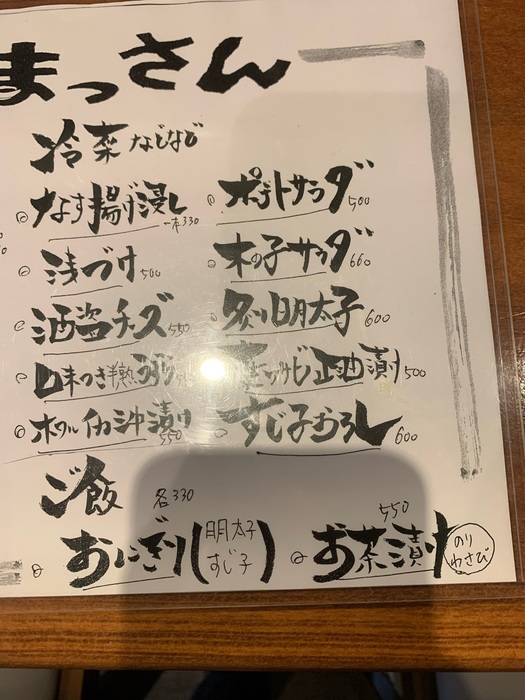 まっさん
冷菜 などなど
なす揚げ浸し 一本330
ポテトサラダ 500
浅づけ 500
木の子サラダ 660
酒盗チーズ 550
炙り明太子 600
味つき半熟
ワサビ正油漬け 500
ホタルイカ沖漬け 550
すじ子おろし 600
ご飯
各330
おにぎり(明太子 すじ子)
550
お茶漬け のり わさび